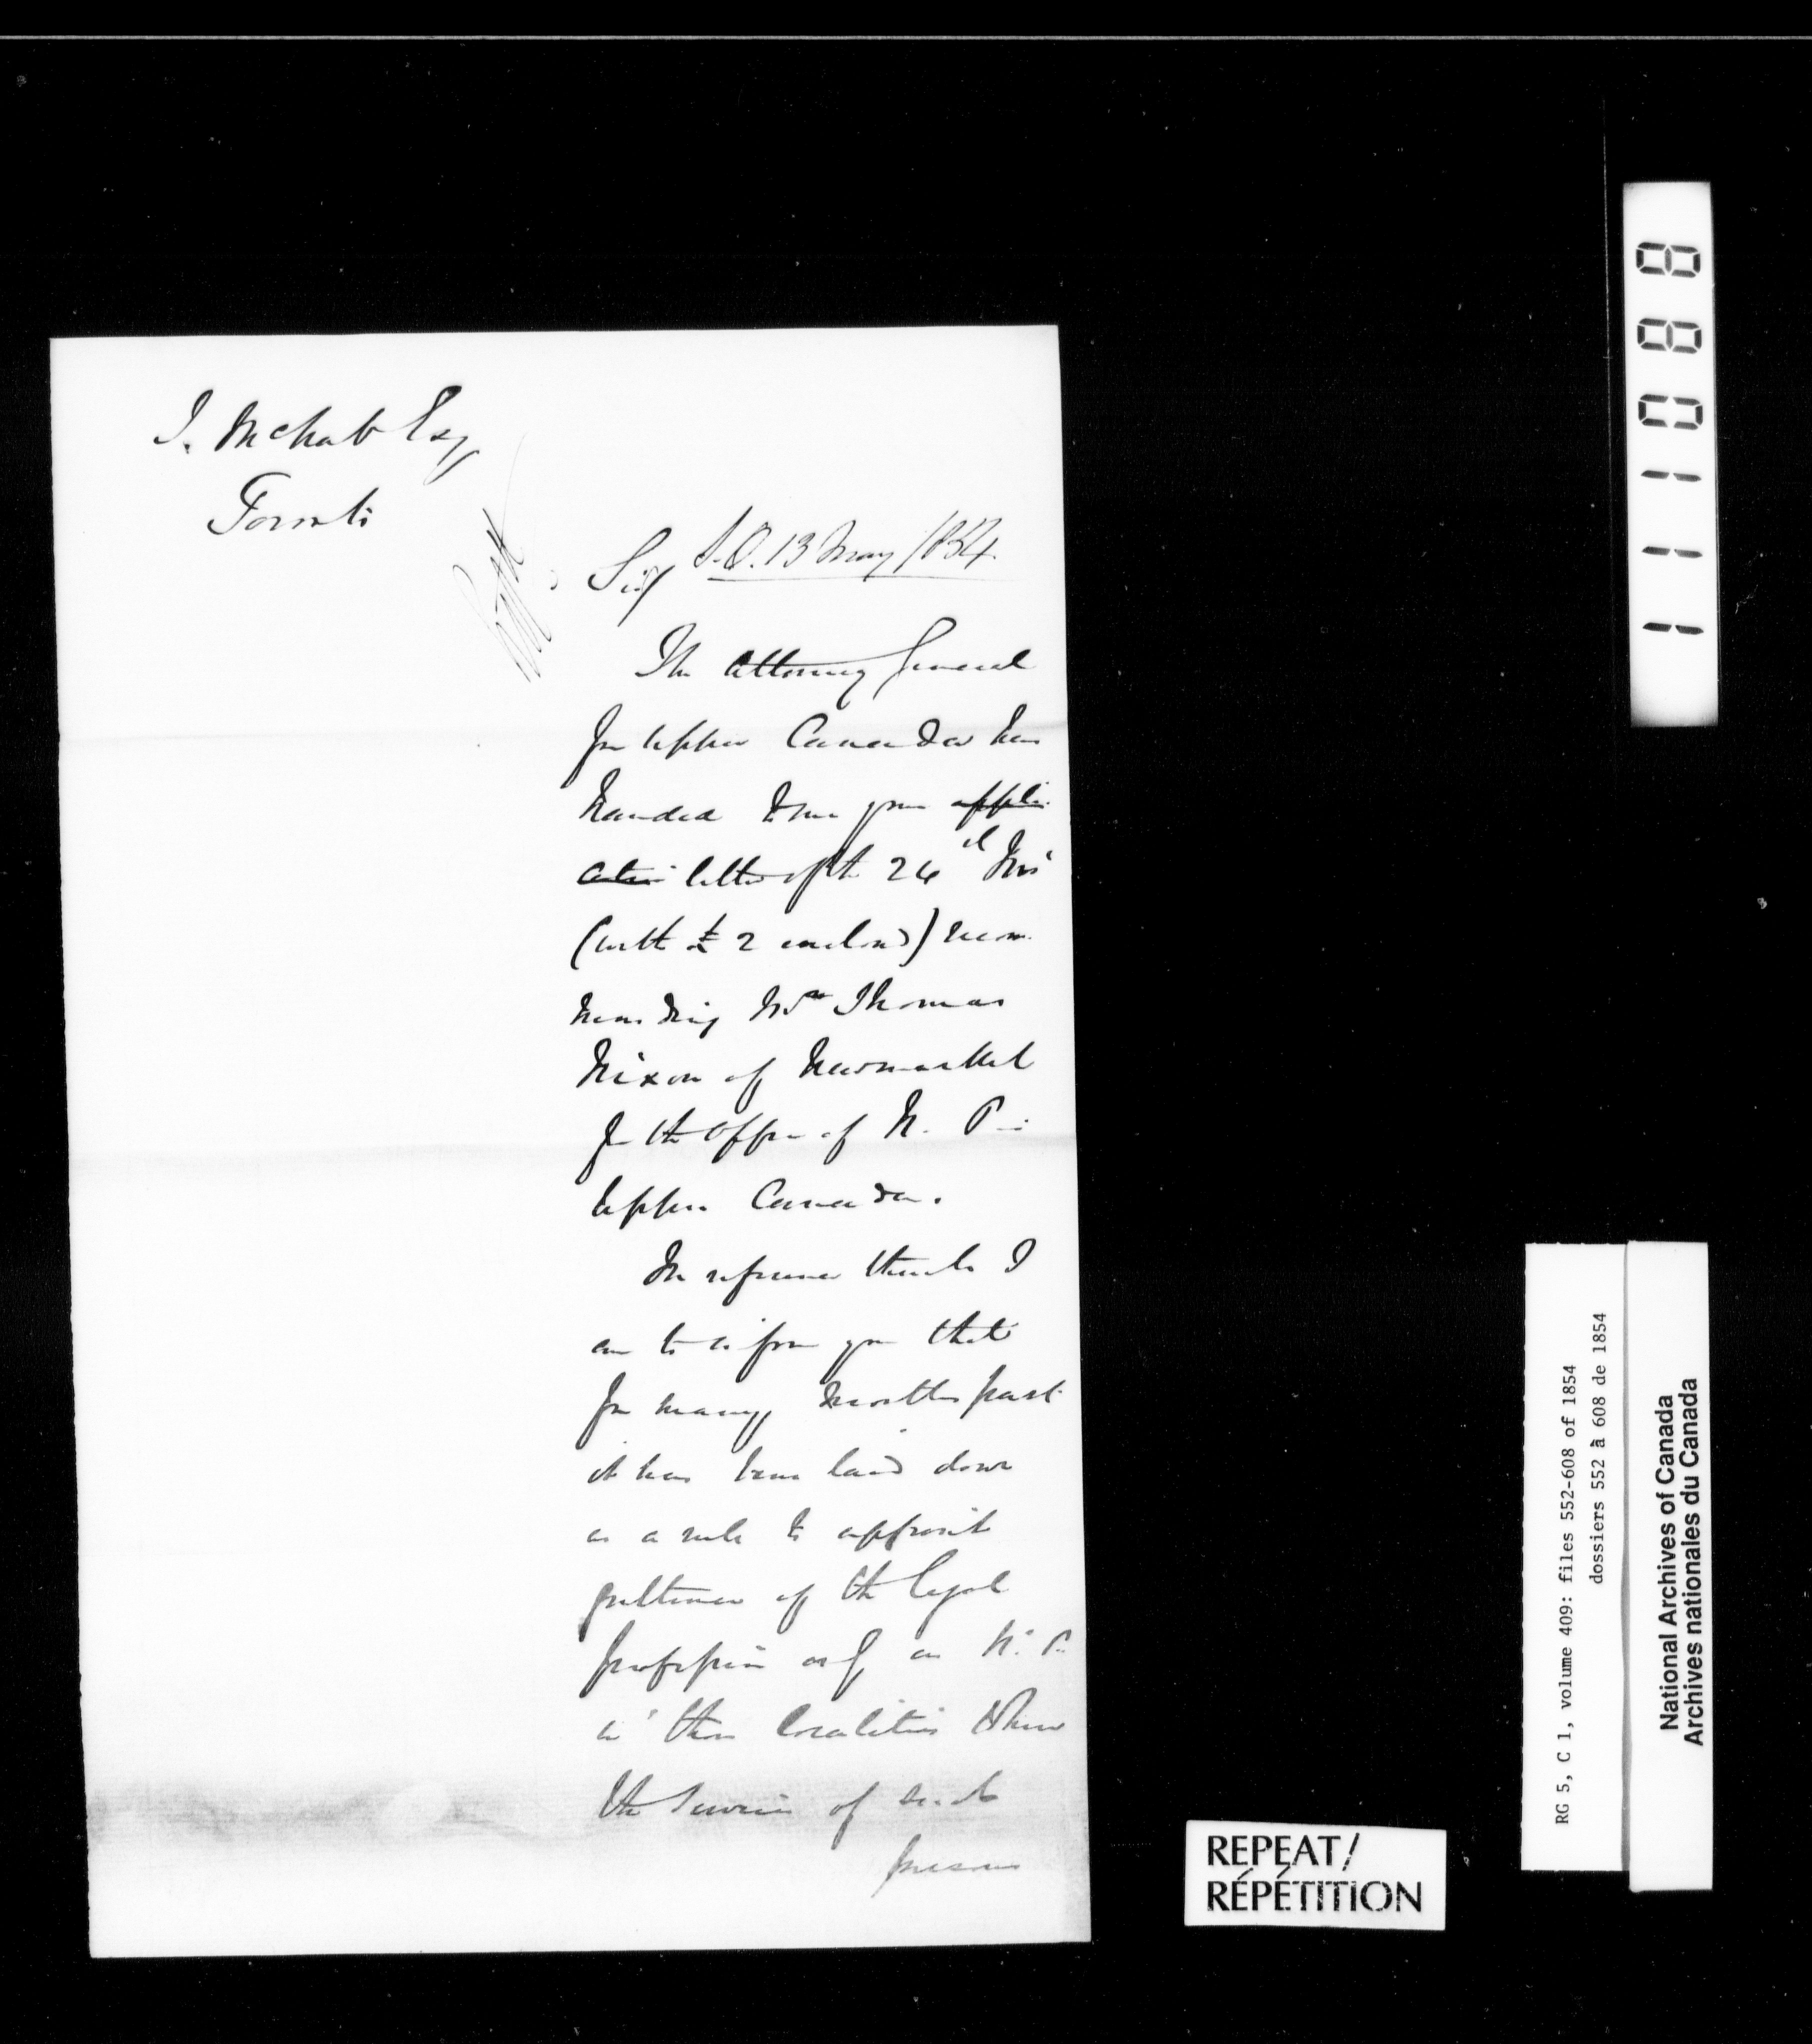 J. McNab Esq
Toronto
Sir S.O. 13 May /1854.
The Attorney General
for Upper Canada has
handed to me your appli
cation letter of the 2d Inst
(with £2 enclosed) recom
mending Mr Thomas
Nixon of Newmarket
for the Office of N. P. in
Upper Canada.
In reference thereto I
am to inform you that
for many months past
it has been laid down
as a rule to appoint
gentlemen of the legal
profession only as N. P.
in those localities where
the services of such
persons
111088
RG 5, C 1, volume 409: files 552-608 of 1854
dossiers 552 à 608 de 1854
National Archives of Canada
Archives nationales du Canada
REPEAT/
RÉPÉTITION